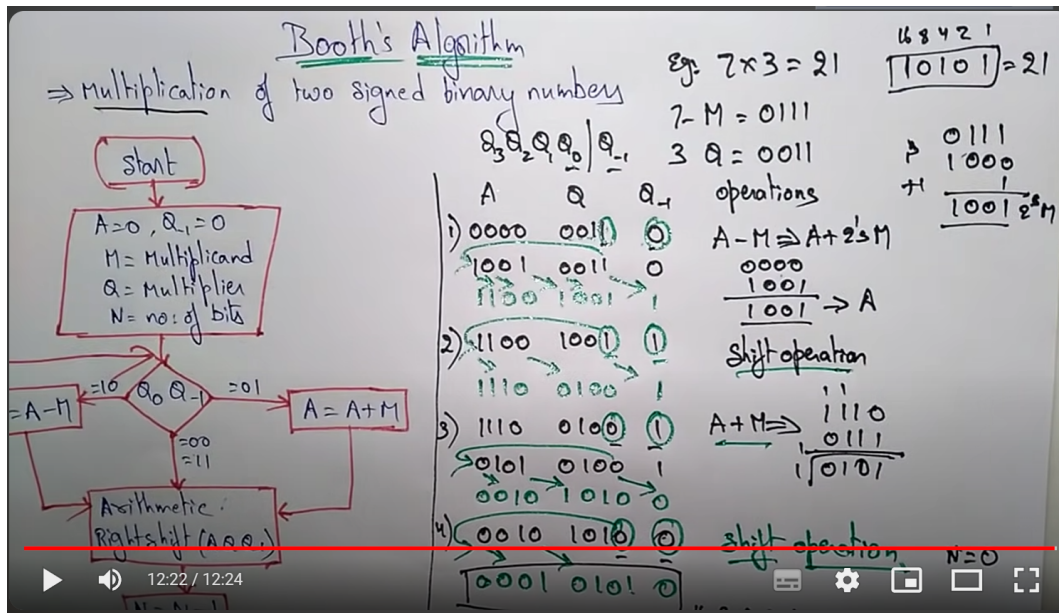 Booth's Algorithm
⇒ Multiplication of two signed binary numbers
Start
A=0, Q-1=0
M = Multiplicand
Q = Multiplier
N = no: of bits
Q0 Q-1
=10
=A-M
=01
A = A+M
=00
=11
Arithmetic
Rightshift (A,Q,Q-1)
Eg: 7 x 3 = 21
16 8 4 2 1
10101 = 21
7- M = 0111
3 Q = 0011
0111
1000
+1 1
1001 2's M
Q3 Q2 Q1 Q0 | Q-1
A Q Q-1 operations
1) 0000 0011 0
1001 0011 0
1100 1001 1
A-M ⇒ A+2's M
0000
1001
1001 → A
2) 1100 1001 1
1110 0100 1
Shift operation
3) 1110 0100 1
0101 0100 1
0010 1010 0
A+M ⇒
1 1
1110
0111
1
1 0101
4) 0010 1010 0
0001 0101 0
Shift operation
N=0
12:22 / 12:24